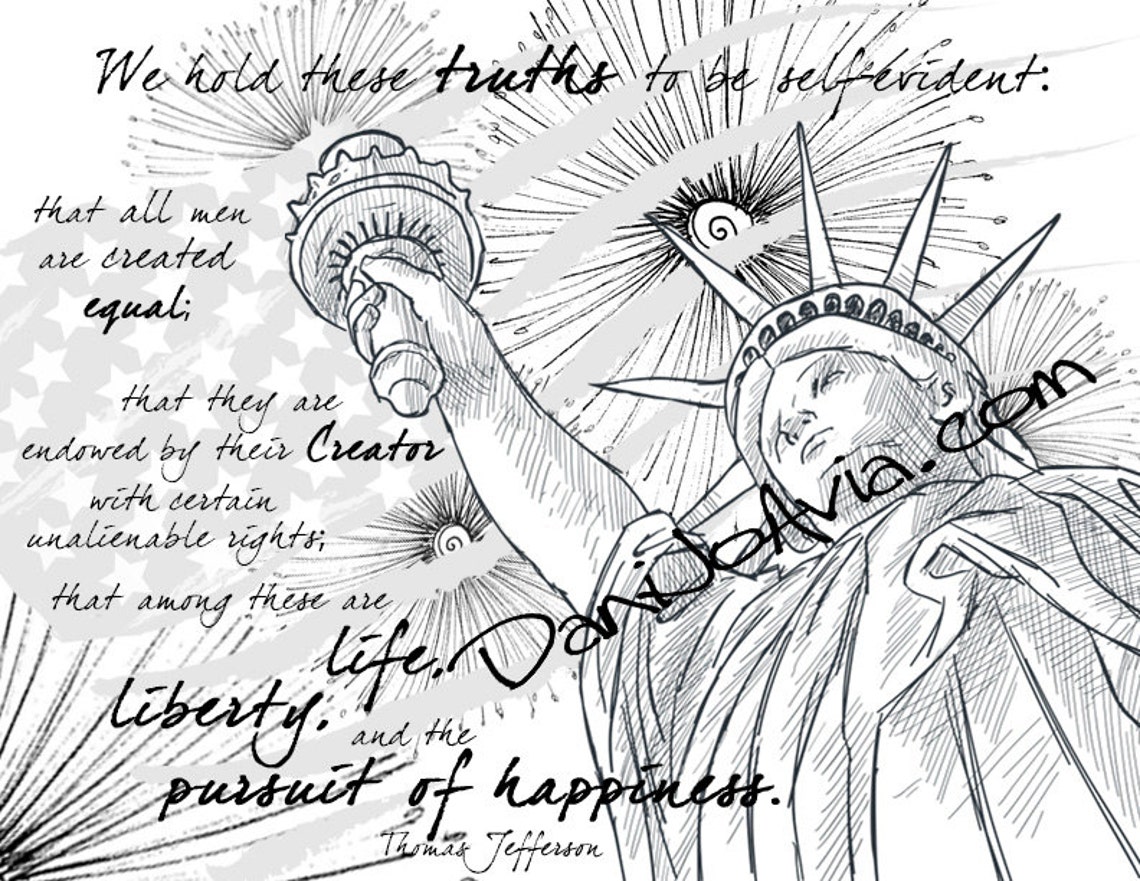 We hold these truths to be self-evident:
that all men
are created
equal;
that they are
endowed by their Creator
with certain
unalienable rights;
that among these are
life,
liberty,
and the
pursuit of happiness.
Thomas Jefferson
DaniJoAvia.com